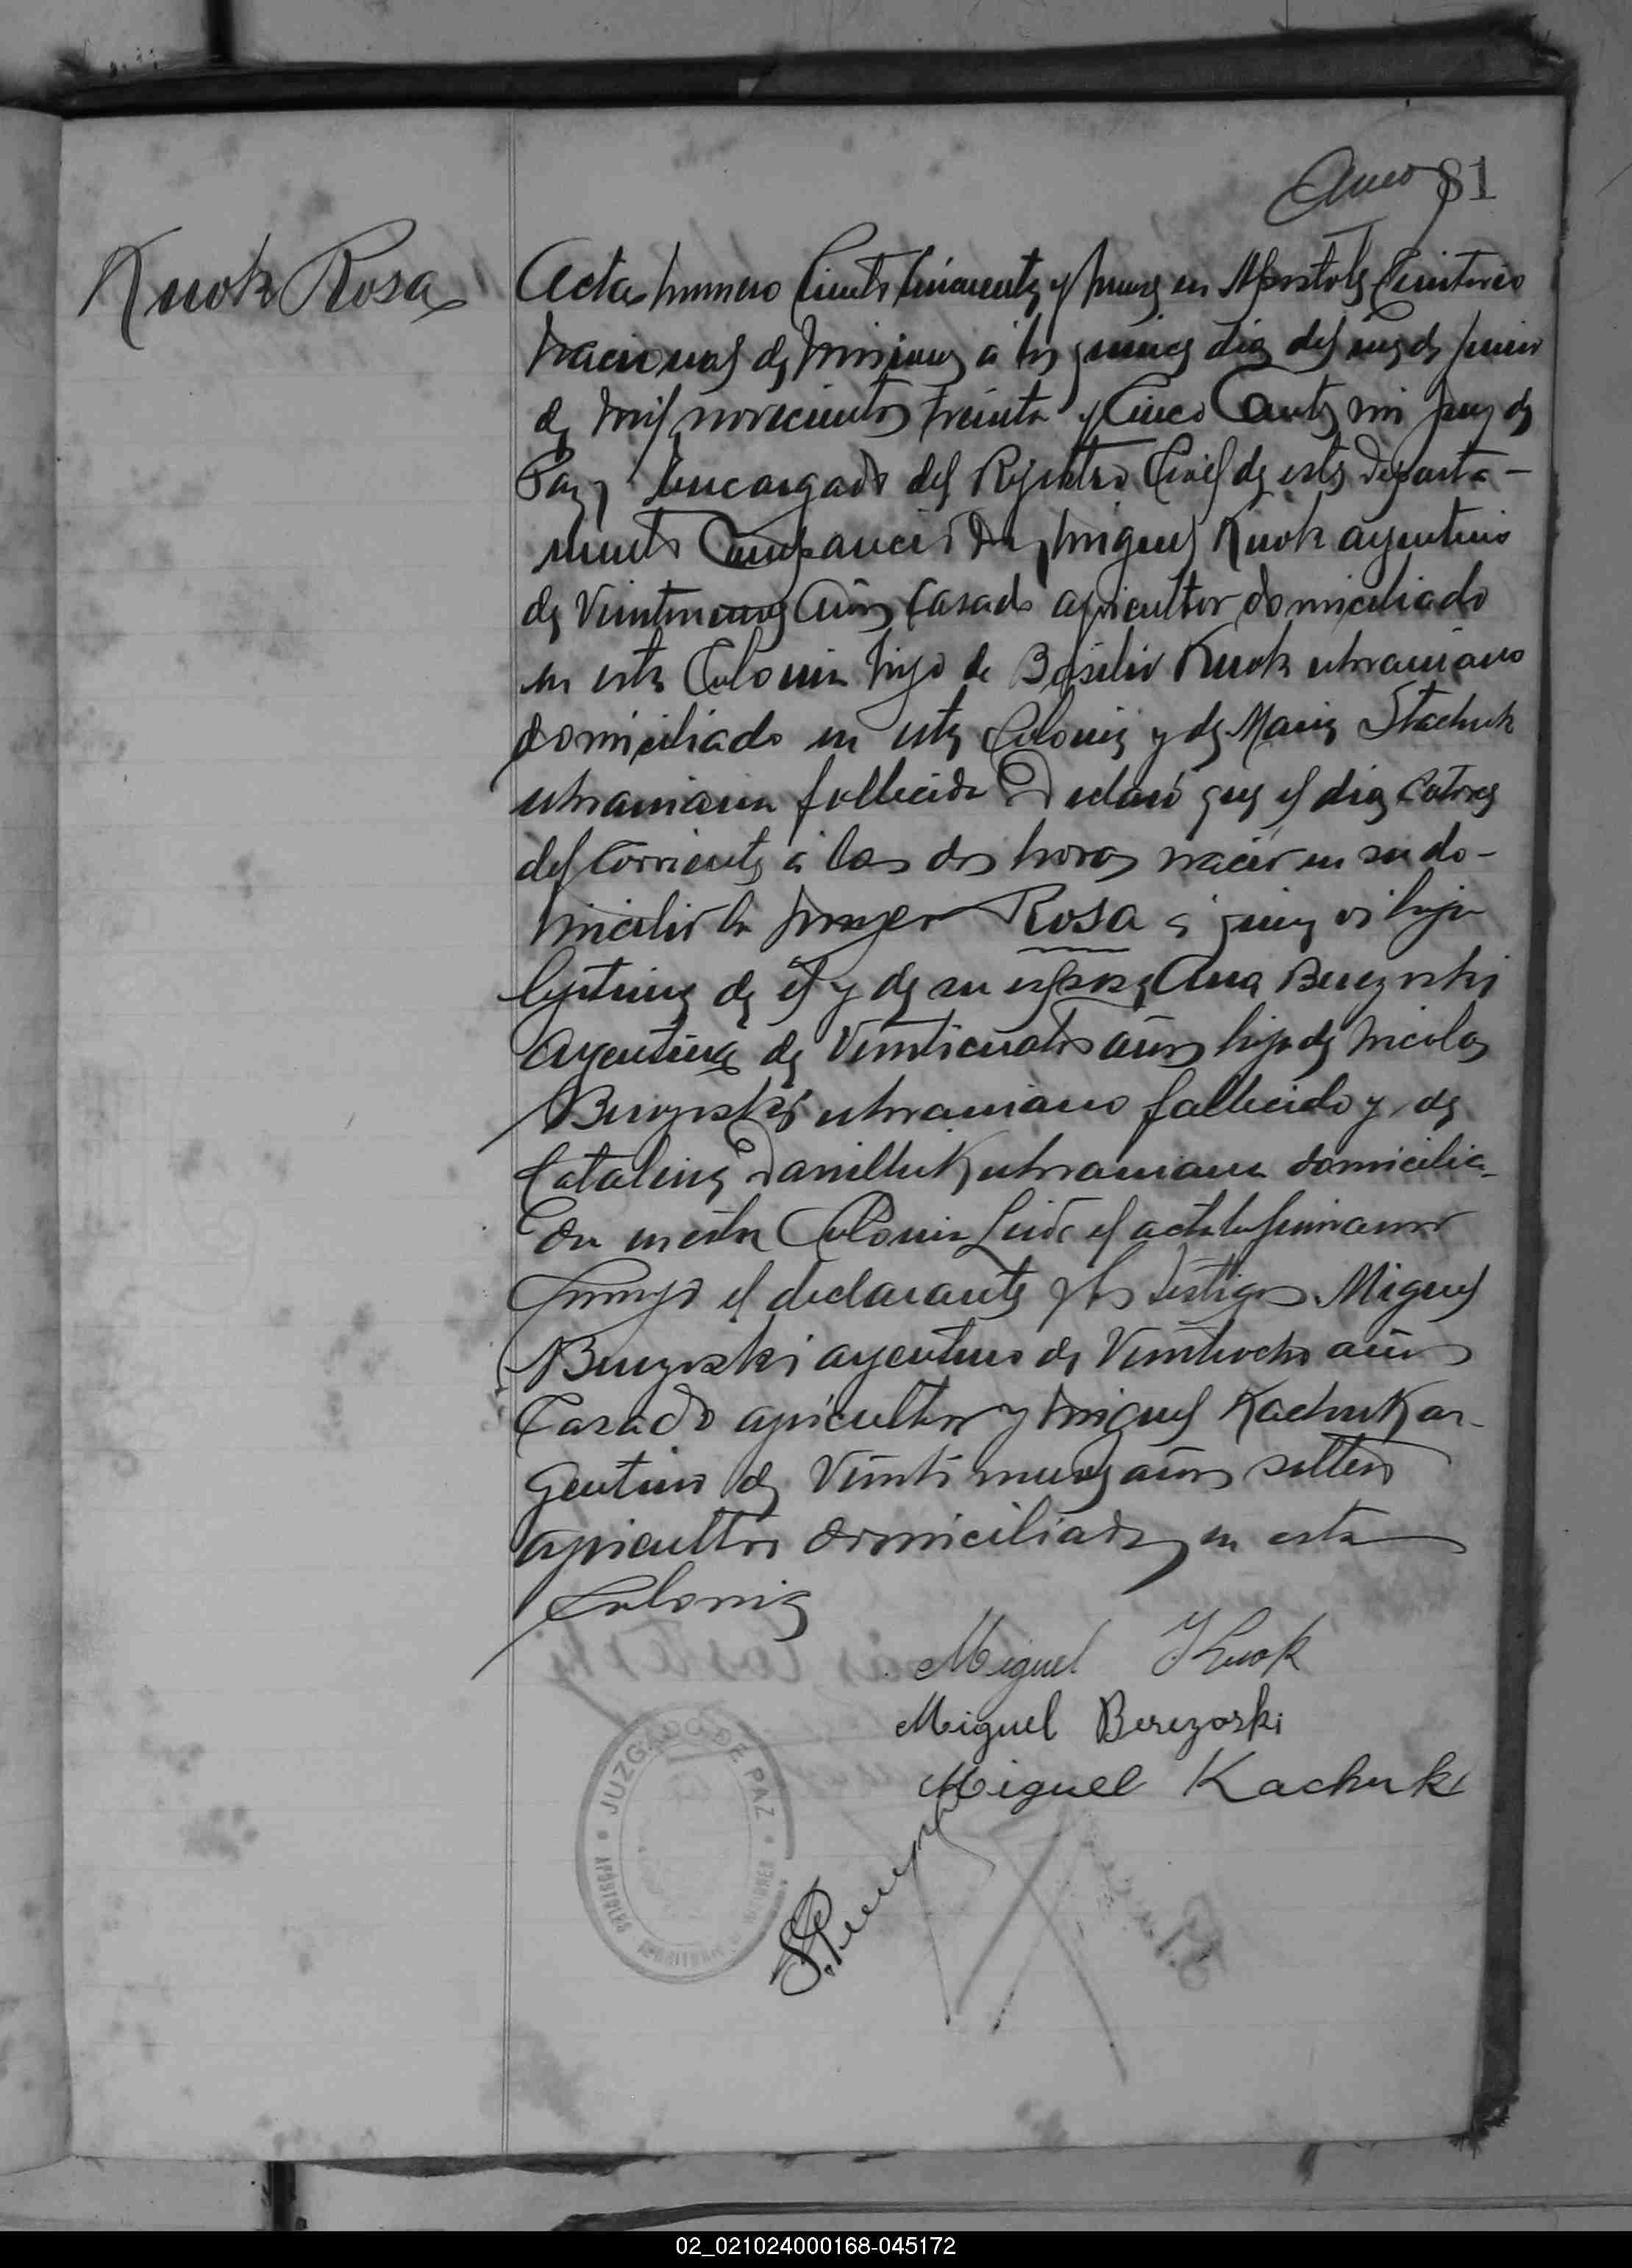 81
Knok Rosa
Acta numero Ciento Cincuenta y nueve en Apostoles Territorio
Nacional de Misiones a los quince dias del mes de Junio
de mil novecientos treinta y Cinco Ante mi Juez de
Paz y Encargado del Rejistro Civil de este Departa-
mento Comparecio Don Miguel Knok argentino
de Veintinueve años Casado agricultor domiciliado
en esta Colonia hijo de Basilio Knok ukraniano
domiciliado en esta Colonia y de Maria Stachuk
ukraniana fallecida Declaró que el dia Catorce
del Corriente a las dos horas nació en su do-
micilio la mujer Rosa a quien es hija
lejitima de el y de su esposa Ana Berezoski
Argentina de Veinticuatro años hija de Nicolas
Berezoski ukraniano fallecido y de
Catalina Daniluk ukraniana domicilia-
da en esta Colonia Leida el acta la firmaron
conmigo el declarante y los testigos Miguel
Berezoski argentino de Veintiocho años
Casado agricultor y Miguel Kachuk ar-
gentino de Veintinueve años soltero
agricultor domiciliados en esta
Colonia
Miguel Knok
Miguel Berezoski
Miguel Kachuk
JUZGADO DE PAZ
APOSTOLES
MISIONES
02_021024000168-045172